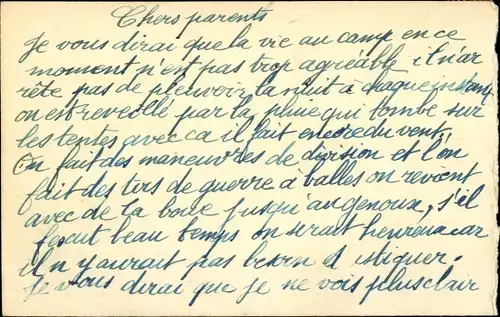 Chers parents
Je vous dirai que la vie au camp en ce
moment n'est pas trop agréable il n'ar
rête pas de pleuvoir la nuit à chaque instant
on est reveillé par la pluie qui tombe sur
les tentes avec ca il fait encore du vent.
On fait des manœuvres de division et l'on
fait des tirs de guerre à balles on revient
avec de la boue jusqu'au genoux, s'il
fesait beau temps on serait heureux car
il n'y aurait pas besoin d'astiquer.
Je vous dirai que je ne vois plus clair